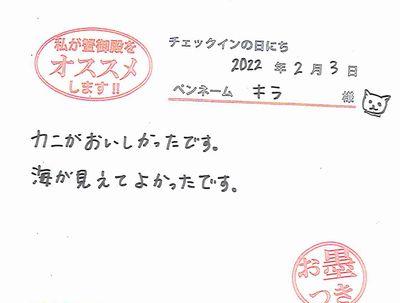 私が菅御殿を
オススメ
します!!
チェックインの日にち
2022 年 2 月 3 日
ペンネーム キラ 様
カニがおいしかったです。
海が見えてよかったです。
お墨
つき